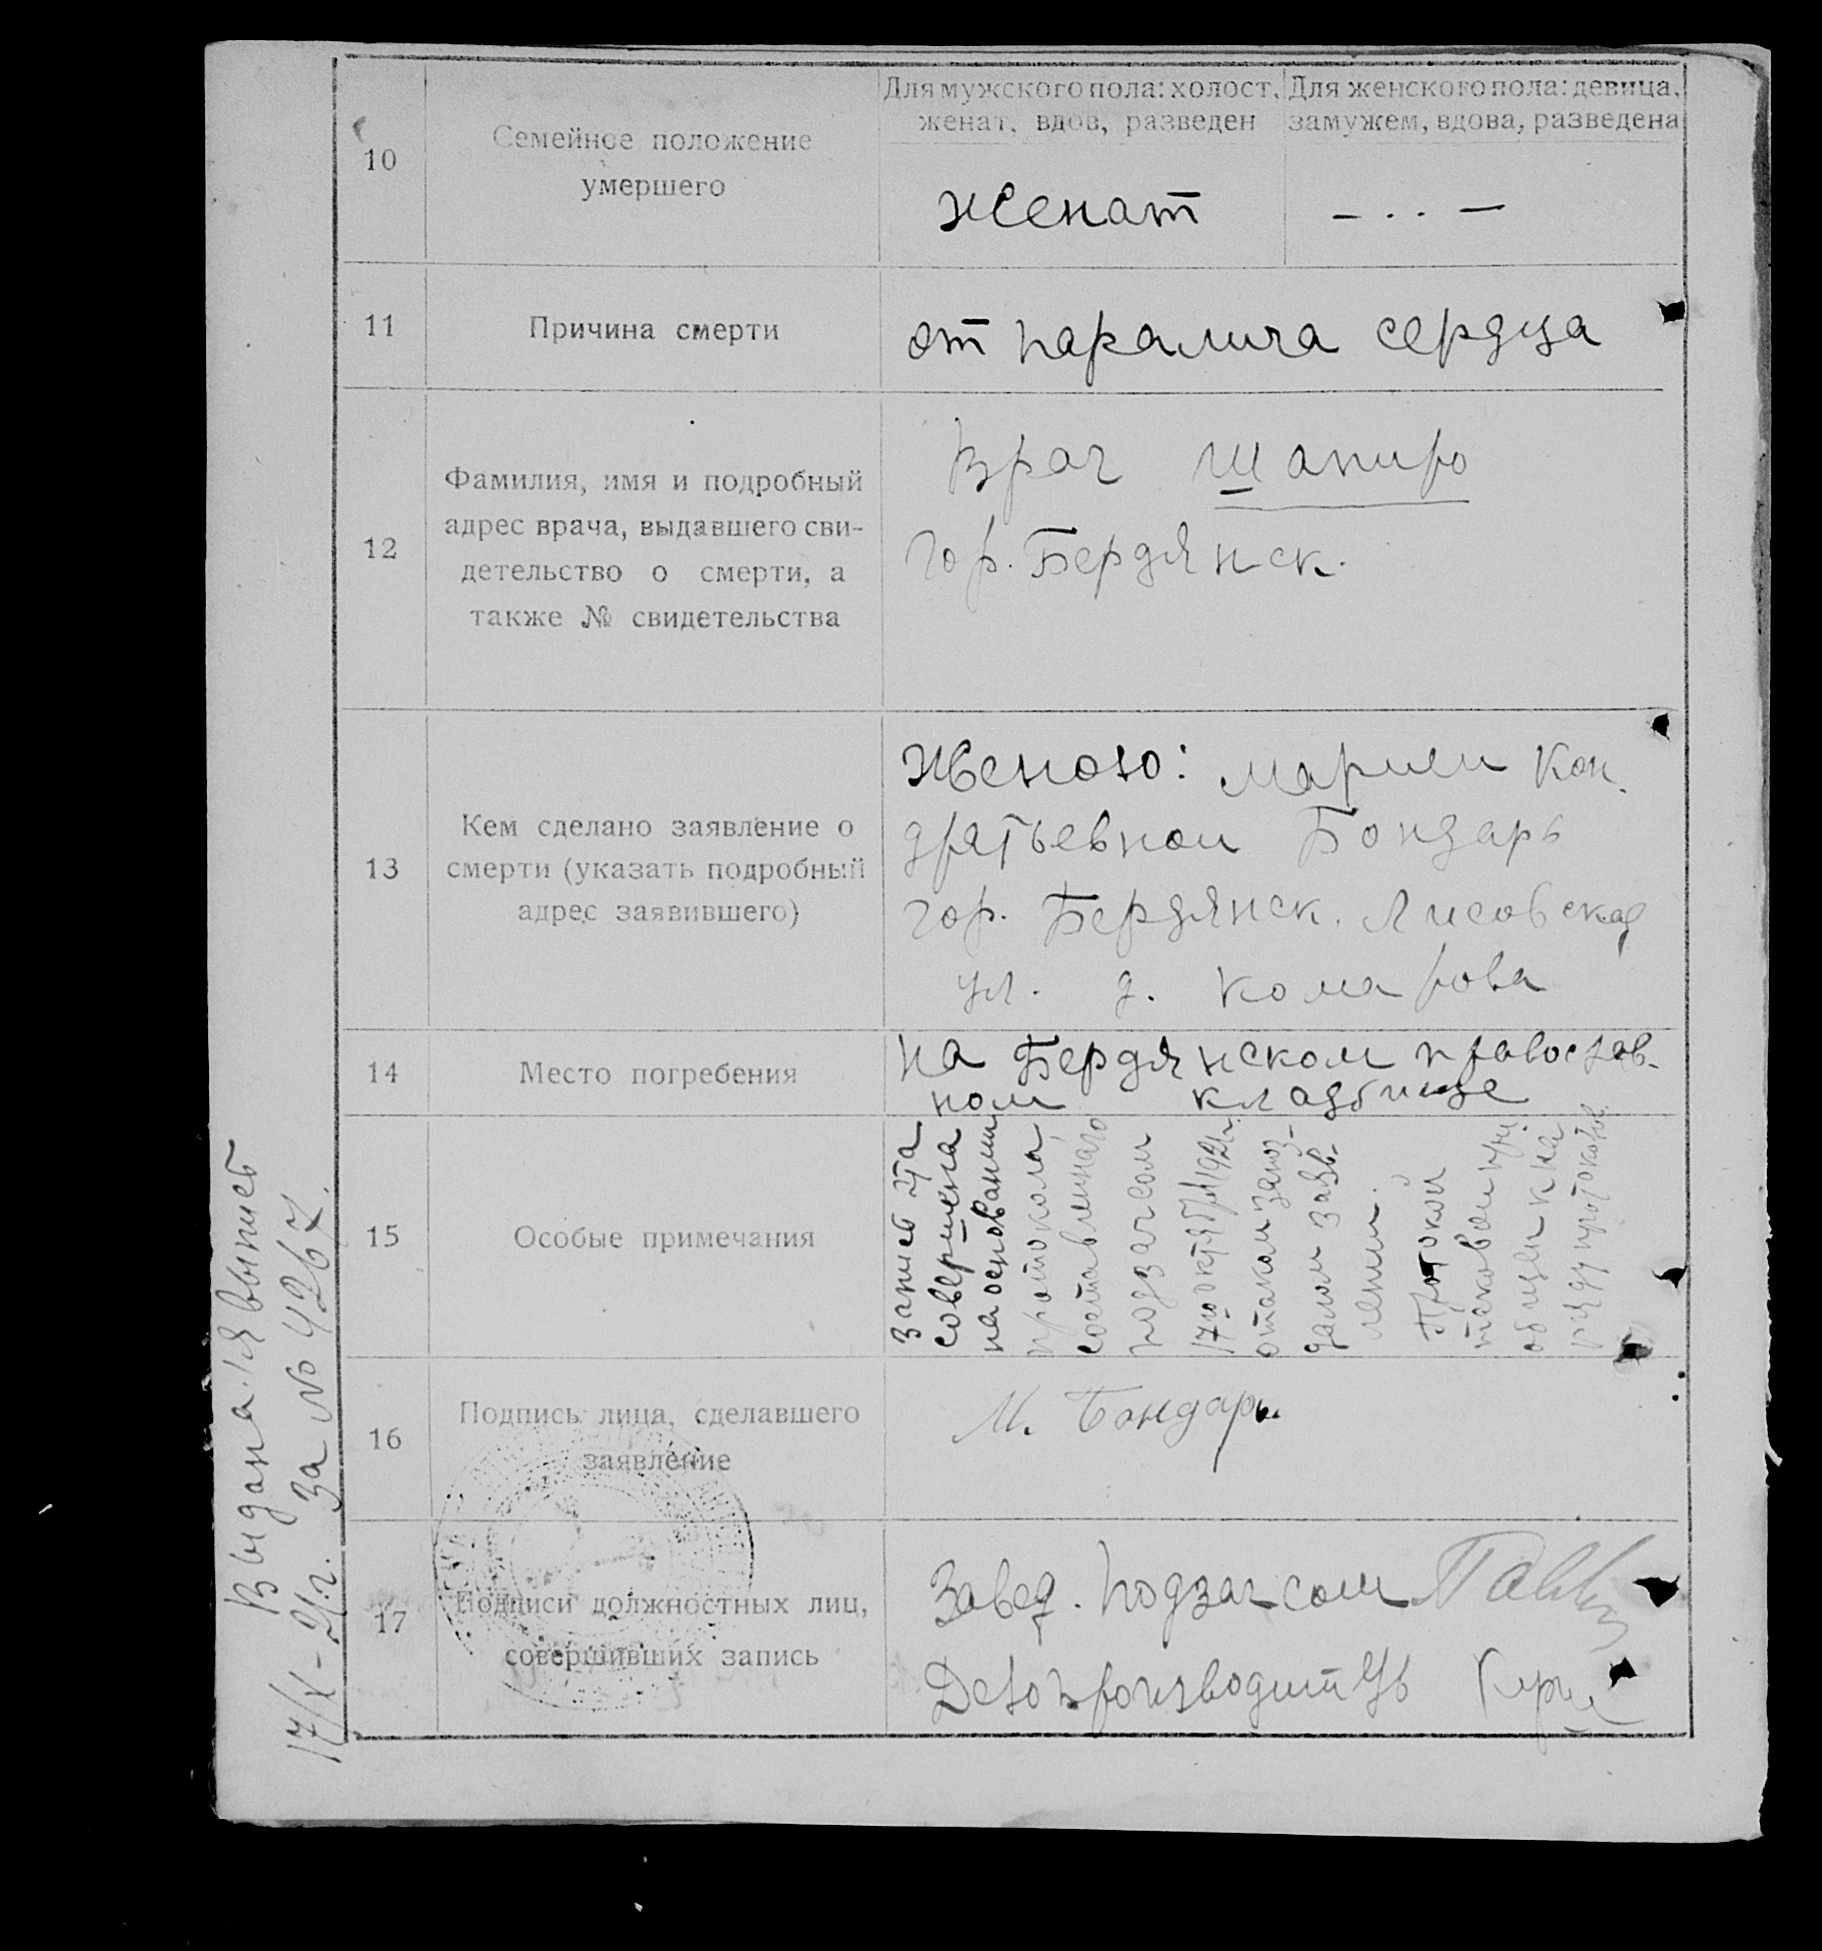 Для мужского пола: холост, женат, вдов, разведен
Для женского пола: девица, замужем, вдова, разведена
10
Семейное положение
умершего
женат
— . . —
11
Причина смерти
от паралича сердца
12
Фамилия, имя и подробный
адрес врача, выдавшего сви-
детельство о смерти, а
также № свидетельства
Врач Шапиро
гор. Бердянск.
13
Кем сделано заявление о
смерти (указать подробный
адрес заявившего)
Женою: Марией Кон.
дратьевной Бондарь
гор. Бердянск. Лисовская
ул. д. Комарова
14
Место погребения
на Бердянском православ-
ном кладбище
15
Особые примечания
Запись эта
совершена
на основании
протокола,
составленнаго
подзагсом
17го октября 1921г.
о таком запоз-
далом заяв-
лении.
Протокол
таковой при
общен к на
ряду протоколов
16
Подпись лица, сделавшего
заявление
М. Бондарь
17
Подписи должностных лиц,
совершивших запись
Завед. Подзагсом
Делопроизводитель
Выдана 1я выпись
17/X-21г. За № 4267.